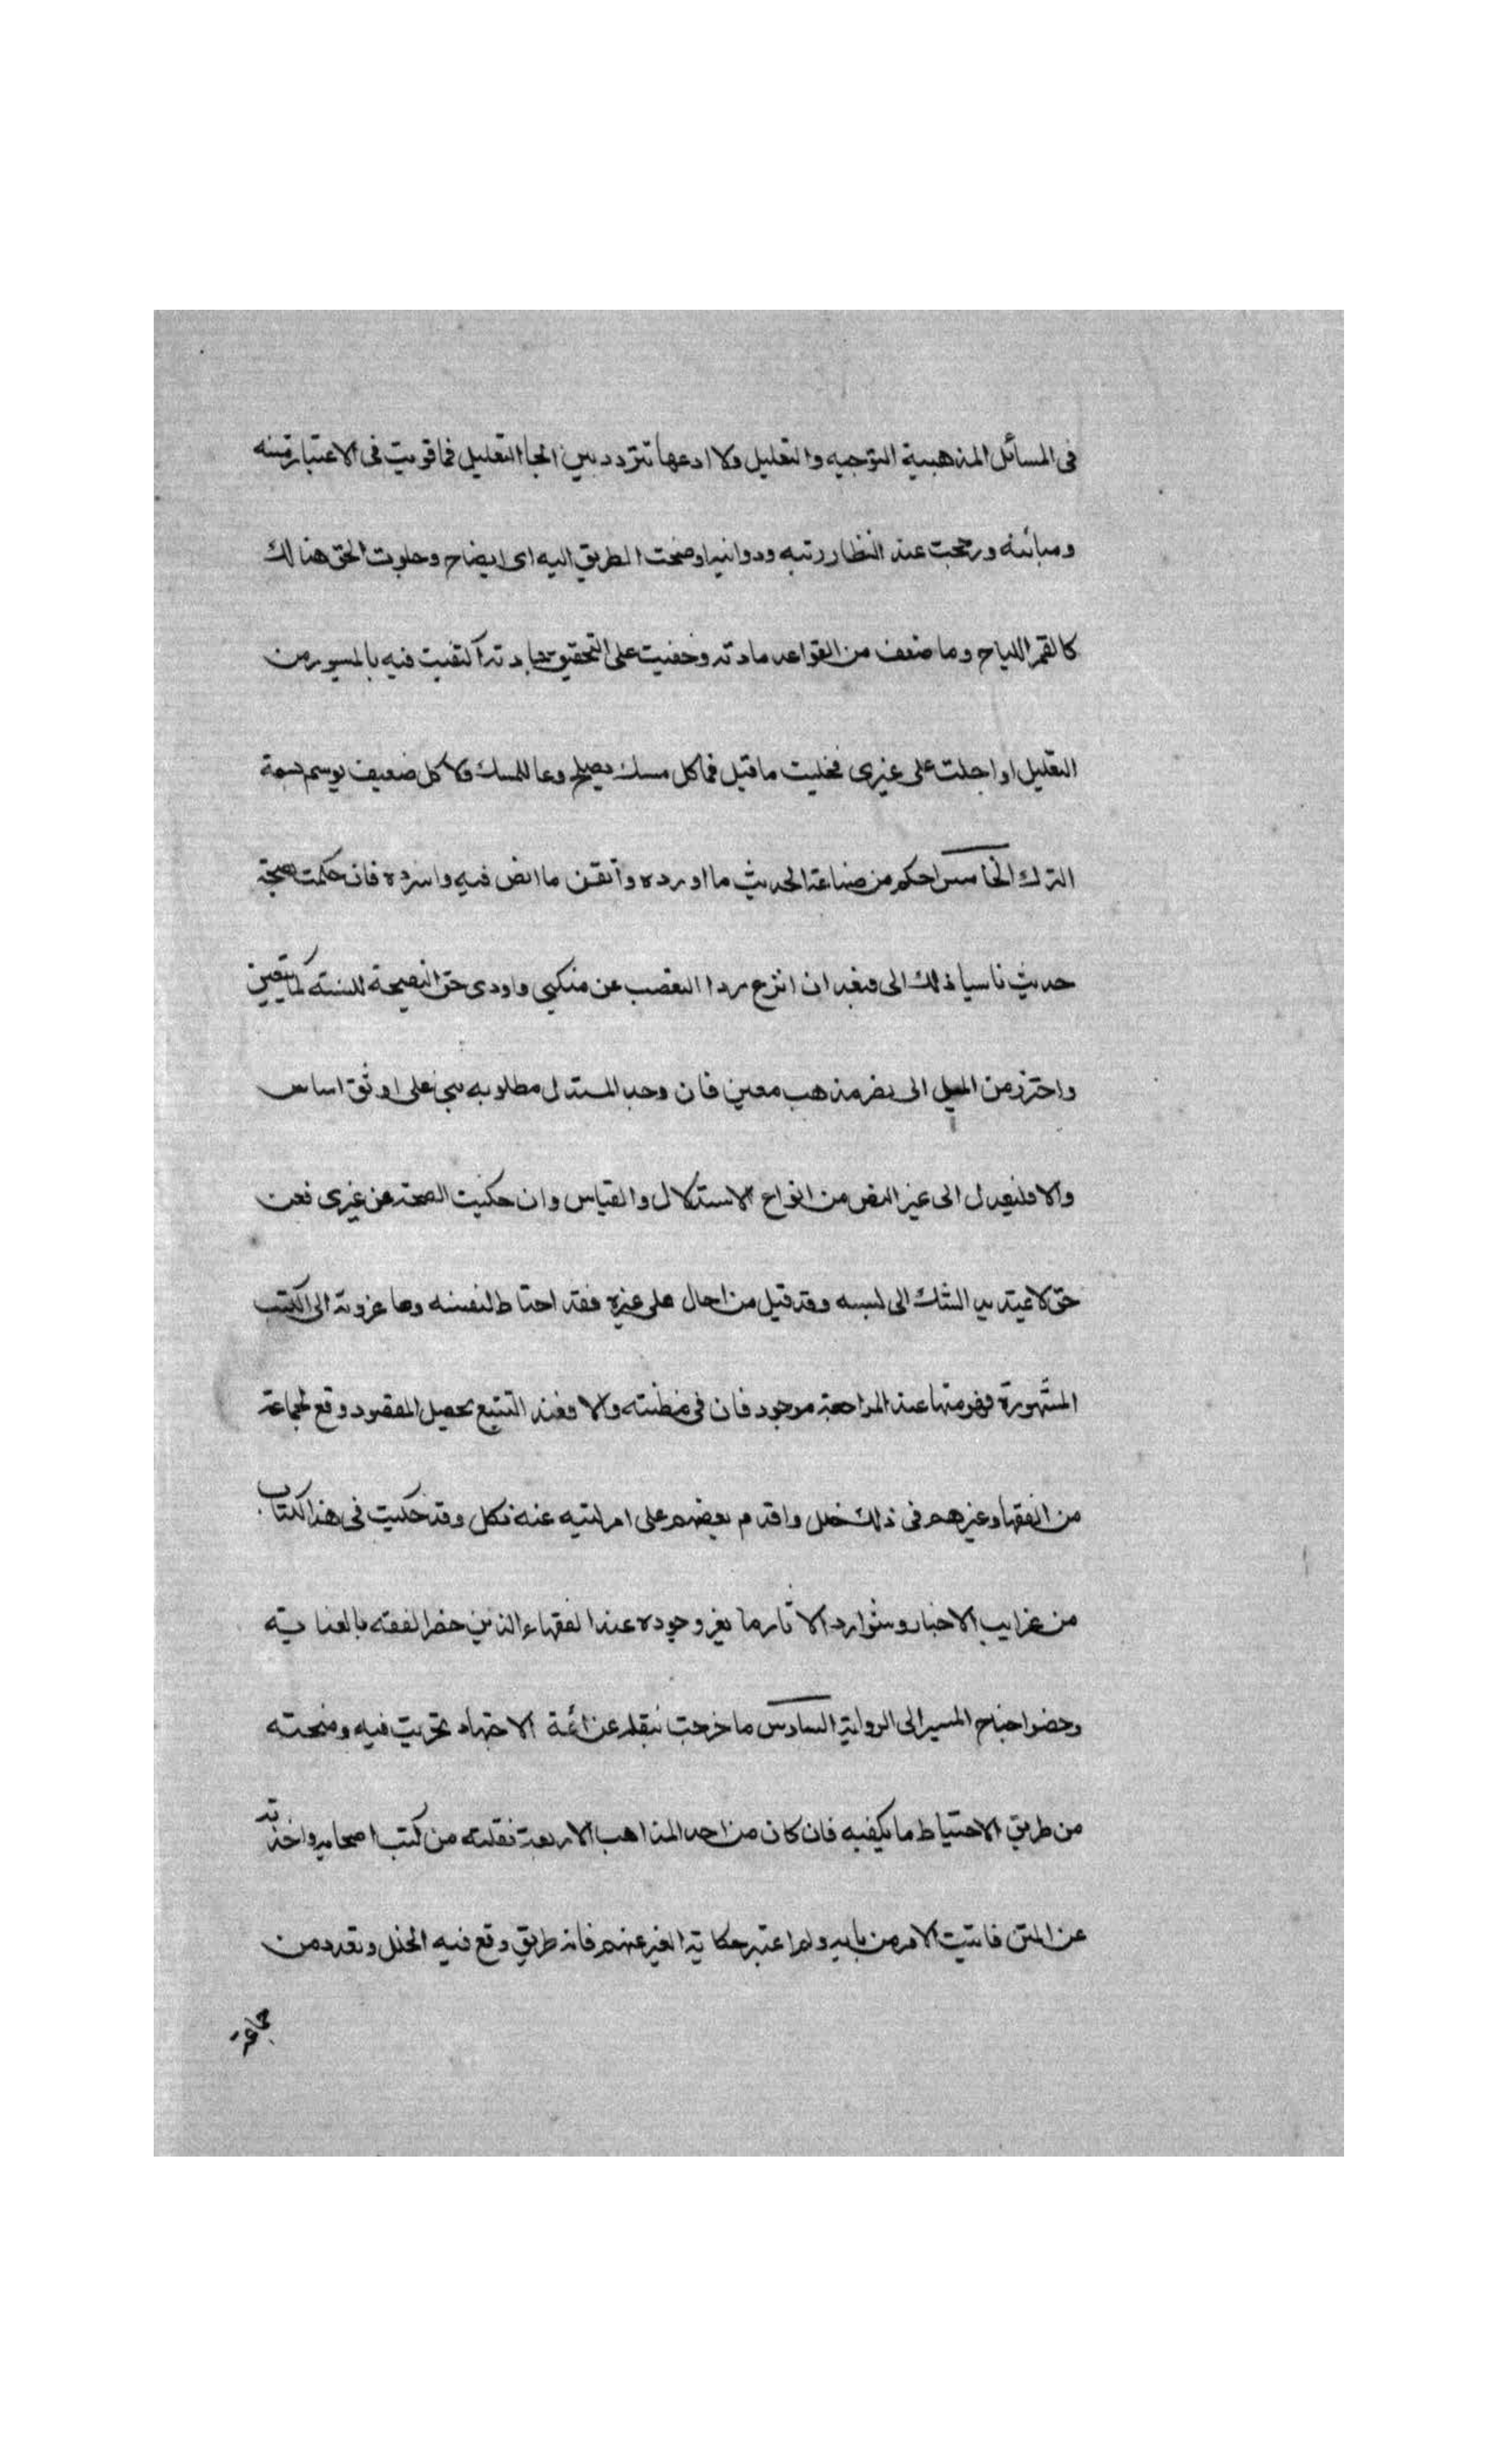 فى المسائل المذهبية التوجيه والتعليل ولا ادعها تتردد بين انحا التعليل فما قويت فى الاعتبار قنينه
ومبانيه ورجحت عند النظار رتبه ودوانيه اوضحت الطريق اليه اى ايضاح وجلوت الحق هنالك
كالقمر اللياح وما ضعف من القواعد مادته وخفيت على التحقيق اكتفيت فيه بالميسور من
التعليل او احلت على غيرى فحكيت ما قيل فما كل مسك يصلح وعا للمسك ولا كل ضعيف يوسم بسمة
الترك الخامس احكم من صناعة الحديث ما اورده واتقن ما انص فيه واسرده فان حكمت بصحة
حديث ناسبا ذلك الى فبعد ان انزع ردا التعصب عن منكبى واودى حق النصيحة للسنة كما يتعين
واحترز من الميل الى نصر مذهب معين فان وجد المستدل مطلوبه بنى على اوثق اساس
والا فليعدل الى غير النص من انواع الاستدلال والقياس وان حكيت الصحة عن غيرى فعن
حق لا تمتد يد الشك الى لبسه وقد قيل من احال على غيره فقد احتاط لنفسه وما عزوته الى الكتب
المشهورة فهو منها عند المراجعة موجود فان فى مظنته والا فعند التتبع يحصل المقصود وقع لجماعة
من الفقها وغيرهم فى ذلك خلل واقدم بعضهم على امر ليته عنه نكل وقد حكيت فى هذا الكتاب
من غرايب الاخبار وشوارد الاثار ما يعز وجوده عند الفقهاء الذين خصوا الفقه بالعناية
وحضوا جناح المسير الى الرواية السادس ما خرجت بنقله عن ائمة الاجتهاد تحريت فيه ومنحته
من طريق الاحتياط ما يكفيه فان كان من احد المذاهب الاربعة نقلته من كتب اصحابه واخذته
عن المتن فاتيت الامر من بابه ولم اعتبر حكاية الغير عنهم فانه طريق وقع فيه الخلل وتعدد من
جماعة